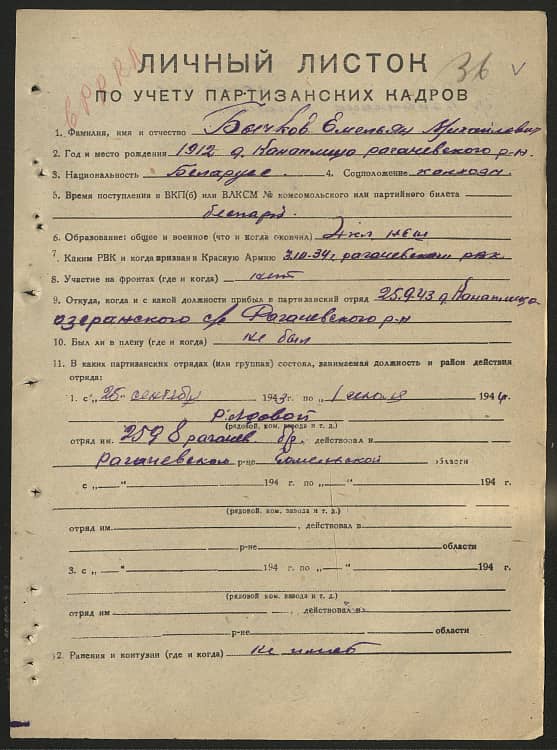 36
ЛИЧНЫЙ ЛИСТОК
ПО УЧЕТУ ПАРТИЗАНСКИХ КАДРОВ
1. Фамилия, имя и отчество Бычков Емельян Михайлович
2. Год и место рождения 1912 д. Канаплица рагачевского р-н
3. Национальность Беларус 4. Соцположение
5. Время поступления в ВКП(б) или ВЛКСМ № комсомольского или партийного билета
беспарт.
6. Образование: общее и военное (что и когда окончил)
7. Каким РВК и когда призван в Красную Армию рагачевским рвк
8. Участие на фронтах (где и когда) нет
9. Откуда, когда и с какой должности прибыл в партизанский отряд 25.9.43 д. Канаплица
озеранского с/с Рагачевского р-н
10. Был ли в плену (где и когда) не был
11. В каких партизанских отрядах (или группах) состоял, занимаемая должность и район действия
отряда:
1. с „25" сентября 1943 г. по „1 июля 1944
Рядовой
(рядовой, ком. взвода и т. д.)
отряд им. 259 8 рагачев. бр. действовал в
Рагачевском р-не Гомельской области
с „—" 194 г. по „—" 194 г.
(рядовой, ком. взвода и т. д.)
отряд им. , действовал в
р-не области
3. с „—" 194 г. по „—" 194 г.
(рядовой, ком. взвода и т. д.)
отряд им. действовал в
р-не области
2. Ранения и контузии (где и когда) не имеет